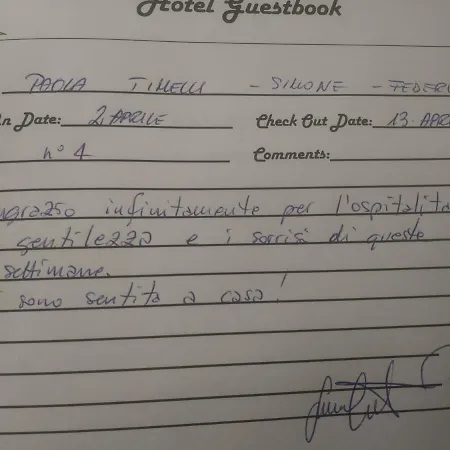 Hotel Guestbook
PAOLA TIMELLI - SIMONE - FEDERI
n Date: 2 APRILE Check Out Date: 13 APR
n° 4 Comments:
ngrazio infinitamente per l'ospitalita
gentilezza e i sorrisi di queste
settimane.
i sono sentita a casa!